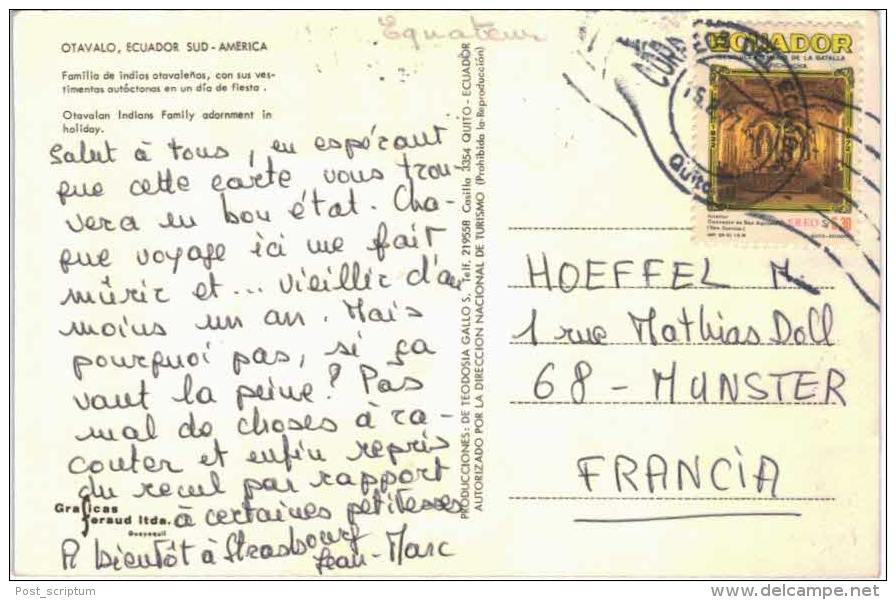 Equateur
OTAVALO, ECUADOR SUD-AMERICA
Familia de indios otavaleños, con sus ves-
timentas autóctonas en un día de fiesta.
Otavalan Indians Family adornment in
holiday.
Salut à tous, en espérant
que cette carte vous trou-
vera en bon état. Cha-
que voyage ici me fait
mûrir et... vieillir d'au
moins un an. Mais
pourquoi pas, si ça
vaut la peine? Pas
mal de choses à ra-
conter et enfin repris
du recul par rapport
à certaines petitesses
A bientôt à Strasbourg
Jean-Marc
Graficas
feraud ltda.
Guayaquil
PRODUCCIONES: DE TEODOSIA GALLO S. Telf. 219558 Casilla 3354 QUITO - ECUADOR
AUTORIZADO POR LA DIRECCION NACIONAL DE TURISMO (Prohibida la Reproducción)
ECUADOR
DE LA BATALLA
PICHINCHA
Interior
Convento de San Agustín
AEREO S/. 1,30
Quito
HOEFFEL M.
1 rue Mathias Doll
68 - MUNSTER
FRANCIA
Post_scriptum
www.delcampe.net